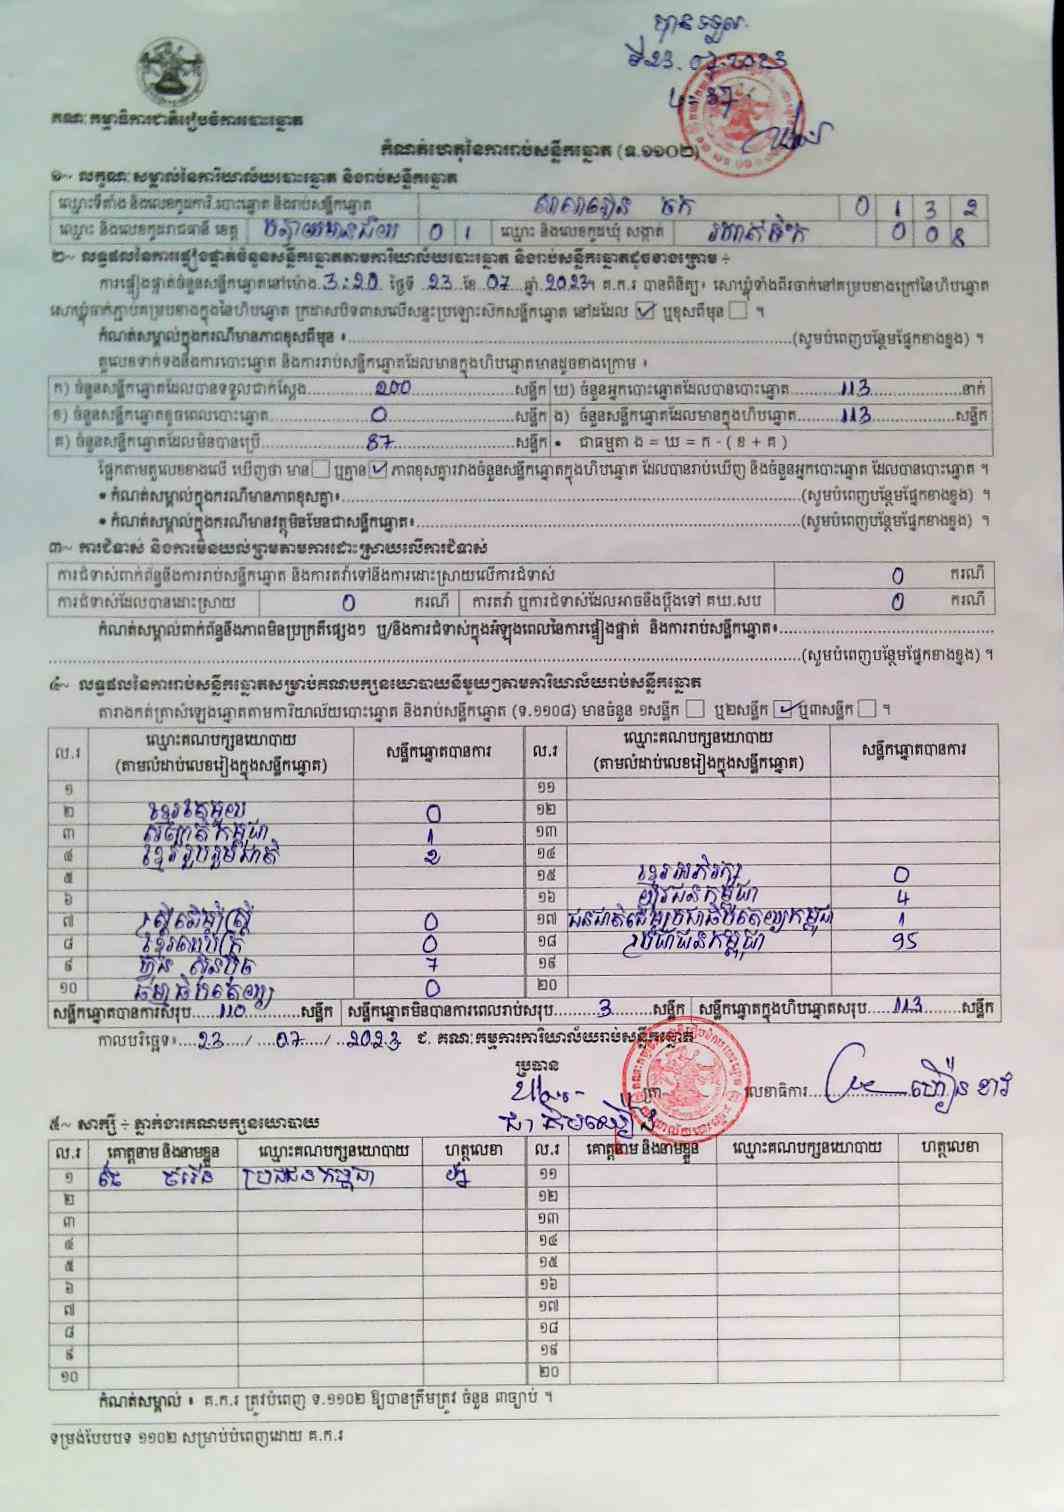 បានទទួល
ទី23.07.2023
គណៈកម្មាធិការជាតិរៀបចំការបោះឆ្នោត
កំណត់ហេតុនៃការរាប់សន្លឹកឆ្នោត (ទ.១១០២)
១~ លក្ខណៈសម្គាល់នៃការិយាល័យបោះឆ្នោត និងរាប់សន្លឹកឆ្នោត
ឈ្មោះទីតាំង និងលេខកូដការិ.បោះឆ្នោត និងរាប់សន្លឹកឆ្នោត សាលារៀន ចក 0 1 3 2
ឈ្មោះ និងលេខកូដរាជធានី ខេត្ត បន្ទាយមានជ័យ 0 1 ឈ្មោះ និងលេខកូដឃុំ សង្កាត់ 0 0 8
២~ លទ្ធផលនៃការផ្ទៀងផ្ទាត់ចំនួនសន្លឹកឆ្នោតតាមការិយាល័យបោះឆ្នោត និងរាប់សន្លឹកឆ្នោតដូចខាងក្រោម ÷
ការផ្ទៀងផ្ទាត់ចំនួនសន្លឹកឆ្នោតនៅម៉ោង 3:20 ថ្ងៃទី 23 ខែ 07 ឆ្នាំ 2023។ គ.ក.រ បានពិនិត្យ៖ សោឃ្លុំទាំងពីរចាក់នៅគម្របខាងក្រៅនៃហិបឆ្នោត
សោឃ្លុំចាក់ភ្ជាប់គម្របខាងក្នុងនៃហិបឆ្នោត ក្រដាសបិទពាសលើសន្ទះប្រឡោះស៊កសន្លឹកឆ្នោត នៅដដែល ✓ ឬខុសពីមុន ។
កំណត់សម្គាល់ក្នុងករណីមានភាពខុសពីមុន ៖ (សូមបំពេញបន្ថែមផ្នែកខាងខ្នង) ។
តួលេខទាក់ទងនឹងការបោះឆ្នោត និងការរាប់សន្លឹកឆ្នោតដែលមានក្នុងហិបឆ្នោតមានដូចខាងក្រោម ៖
ក) ចំនួនសន្លឹកឆ្នោតដែលបានទទួលជាក់ស្តែង 200 សន្លឹក ឃ) ចំនួនអ្នកបោះឆ្នោតដែលបានបោះឆ្នោត 113 នាក់
ខ) ចំនួនសន្លឹកឆ្នោតខូចពេលបោះឆ្នោត 0 សន្លឹក ង) ចំនួនសន្លឹកឆ្នោតដែលមានក្នុងហិបឆ្នោត 113 សន្លឹក
គ) ចំនួនសន្លឹកឆ្នោតដែលមិនបានប្រើ 87 សន្លឹក • ជាធម្មតា ង = ឃ = ក - ( ខ + គ )
ផ្អែកតាមតួលេខខាងលើ ឃើញថា មាន ឬគ្មាន ✓ ភាពខុសគ្នារវាងចំនួនសន្លឹកឆ្នោតក្នុងហិបឆ្នោត ដែលបានរាប់ឃើញ និងចំនួនអ្នកបោះឆ្នោត ដែលបានបោះឆ្នោត ។
• កំណត់សម្គាល់ក្នុងករណីមានភាពខុសគ្នា៖ (សូមបំពេញបន្ថែមផ្នែកខាងខ្នង) ។
• កំណត់សម្គាល់ក្នុងករណីមានវត្ថុមិនមែនជាសន្លឹកឆ្នោត៖ (សូមបំពេញបន្ថែមផ្នែកខាងខ្នង) ។
៣~ ការជំទាស់ និងការមិនយល់ព្រមតាមការដោះស្រាយលើការជំទាស់
ការជំទាស់ពាក់ព័ន្ធនឹងការរាប់សន្លឹកឆ្នោត និងការតវ៉ាទៅនឹងការដោះស្រាយលើការជំទាស់ 0 ករណី
ការជំទាស់ដែលបានដោះស្រាយ 0 ករណី ការតវ៉ា ឬការជំទាស់ដែលអាចនឹងប្តឹងទៅ គឃ.សប 0 ករណី
កំណត់សម្គាល់ពាក់ព័ន្ធនឹងភាពមិនប្រក្រតីផ្សេងៗ ឬ/និងការជំទាស់ក្នុងអំឡុងពេលនៃការផ្ទៀងផ្ទាត់ និងការរាប់សន្លឹកឆ្នោត៖
(សូមបំពេញបន្ថែមផ្នែកខាងខ្នង) ។
៤~ លទ្ធផលនៃការរាប់សន្លឹកឆ្នោតសម្រាប់គណបក្សនយោបាយនីមួយៗតាមការិយាល័យរាប់សន្លឹកឆ្នោត
តារាងកត់ត្រាសំឡេងឆ្នោតតាមការិយាល័យបោះឆ្នោត និងរាប់សន្លឹកឆ្នោត (ទ.១១០៨) មានចំនួន ១សន្លឹក ឬ២សន្លឹក ✓ ឬ៣សន្លឹក ។
ល.រ ឈ្មោះគណបក្សនយោបាយ (តាមលំដាប់លេខរៀងក្នុងសន្លឹកឆ្នោត) សន្លឹកឆ្នោតបានការ ល.រ ឈ្មោះគណបក្សនយោបាយ (តាមលំដាប់លេខរៀងក្នុងសន្លឹកឆ្នោត) សន្លឹកឆ្នោតបានការ
១ ១១
២ ខ្មែរតែមួយ 0 ១២
៣ សញ្ជាតិកម្ពុជា 1 ១៣
៤ ខ្មែររួបរួមជាតិ 2 ១៤
៥ ១៥ ខ្មែរអភិរក្ស 0
៦ ១៦ យុវជនកម្ពុជា 4
៧ ស្ត្រីដើម្បីស្ត្រី 0 ១៧ ជនជាតិដើមប្រជាធិបតេយ្យកម្ពុជា 1
៨ 0 ១៨ ប្រជាជនកម្ពុជា 95
៩ ហ្វ៊ុន ស៊ិនប៉ិច 7 ១៩
១០ ធម្មាធិបតេយ្យ 0 ២០
សន្លឹកឆ្នោតបានការសរុប 110 សន្លឹក សន្លឹកឆ្នោតមិនបានការពេលរាប់សរុប 3 សន្លឹក សន្លឹកឆ្នោតក្នុងហិបឆ្នោតសរុប 113 សន្លឹក
កាលបរិច្ឆេទ៖ 23 / 07 / 2023 ជ. គណៈកម្មការការិយាល័យរាប់សន្លឹកឆ្នោត
ប្រធាន
លេខាធិការ
៥~ សាក្សី ÷ ភ្នាក់ងារគណបក្សនយោបាយ
ល.រ គោត្តនាម និងនាមខ្លួន ឈ្មោះគណបក្សនយោបាយ ហត្ថលេខា ល.រ គោត្តនាម និងនាមខ្លួន ឈ្មោះគណបក្សនយោបាយ ហត្ថលេខា
១ ប្រជាជនកម្ពុជា ១១
២ ១២
៣ ១៣
៤ ១៤
៥ ១៥
៦ ១៦
៧ ១៧
៨ ១៨
៩ ១៩
១០ ២០
កំណត់សម្គាល់ ៖ គ.ក.រ ត្រូវបំពេញ ទ.១១០២ ឱ្យបានត្រឹមត្រូវ ចំនួន ៣ច្បាប់ ។
ទម្រង់បែបបទ ១១០២ សម្រាប់បំពេញដោយ គ.ក.រ